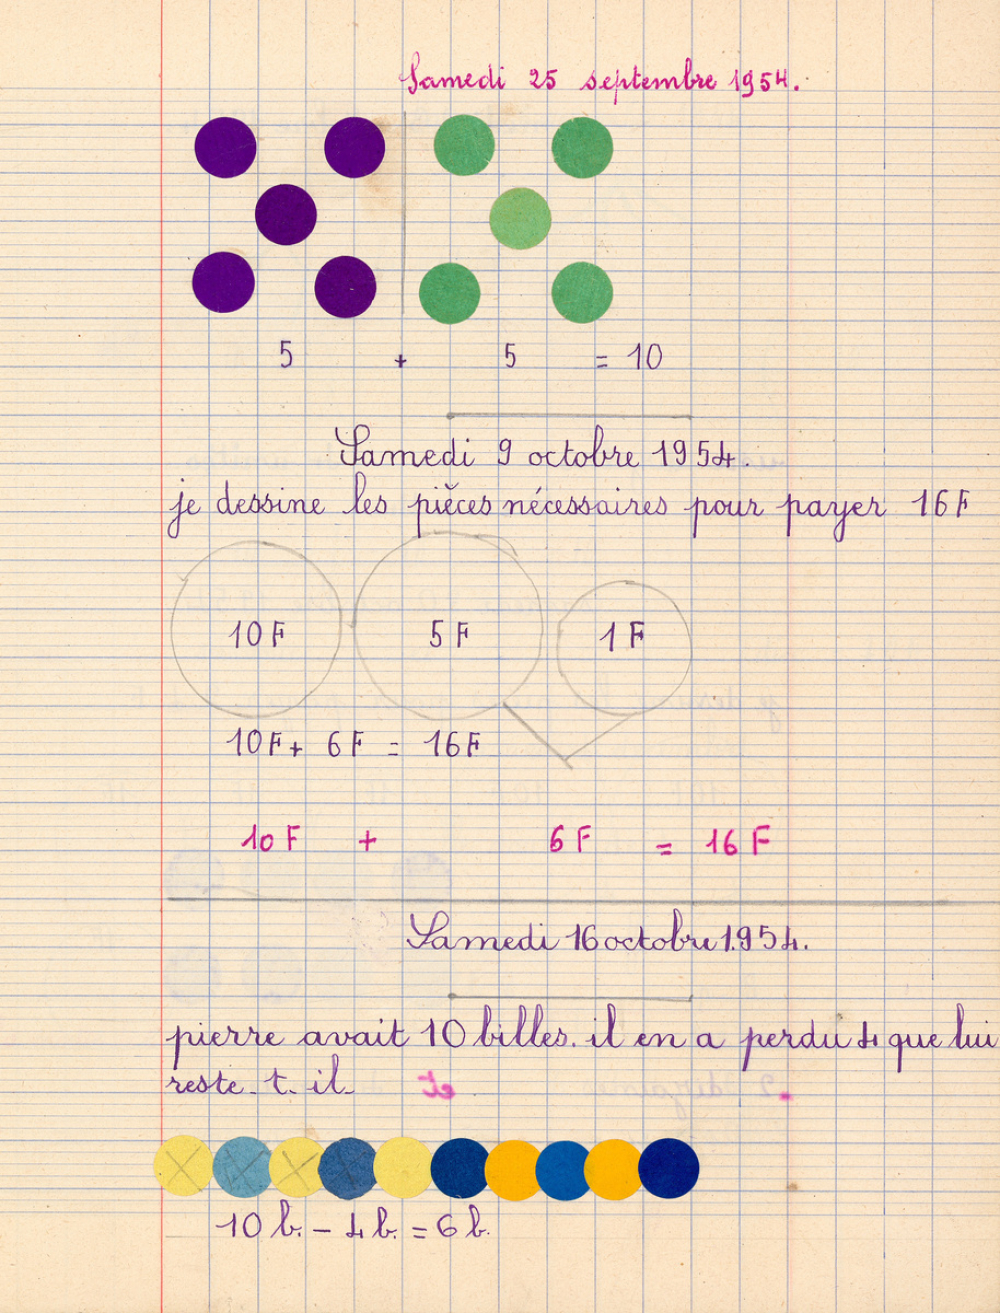 Samedi 25 septembre 1954.
5 + 5 = 10
Samedi 9 octobre 1954.
je dessine les pièces nécessaires pour payer 16F
10F 5F 1F
10F + 6F = 16F
10F + 6F = 16F
Samedi 16 octobre 1954.
pierre avait 10 billes. il en a perdu 4 que lui
reste. t. il
10 b. - 4 b. = 6 b.